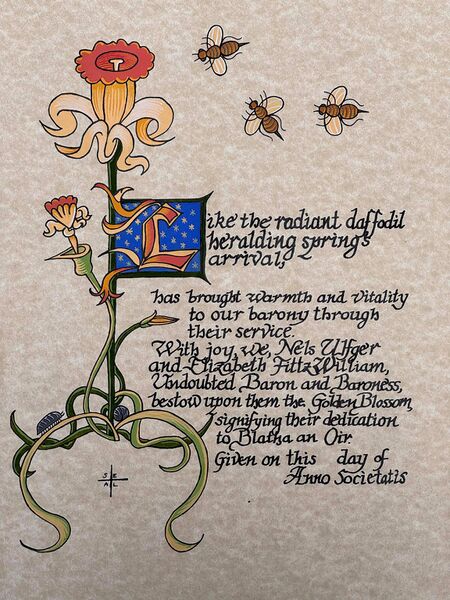 Like the radiant daffodil
heralding springs
arrival,
has brought warmth and vitality
to our barony through
their service.
With joy, we, Nels Ulfger
and Elizabeth Fittz William,
Undoubted Baron and Baroness,
bestow upon them the Golden Blossom,
signifying their dedication
to Blatha an Oir
Given on this day of
Anno Societatis
S E
A L